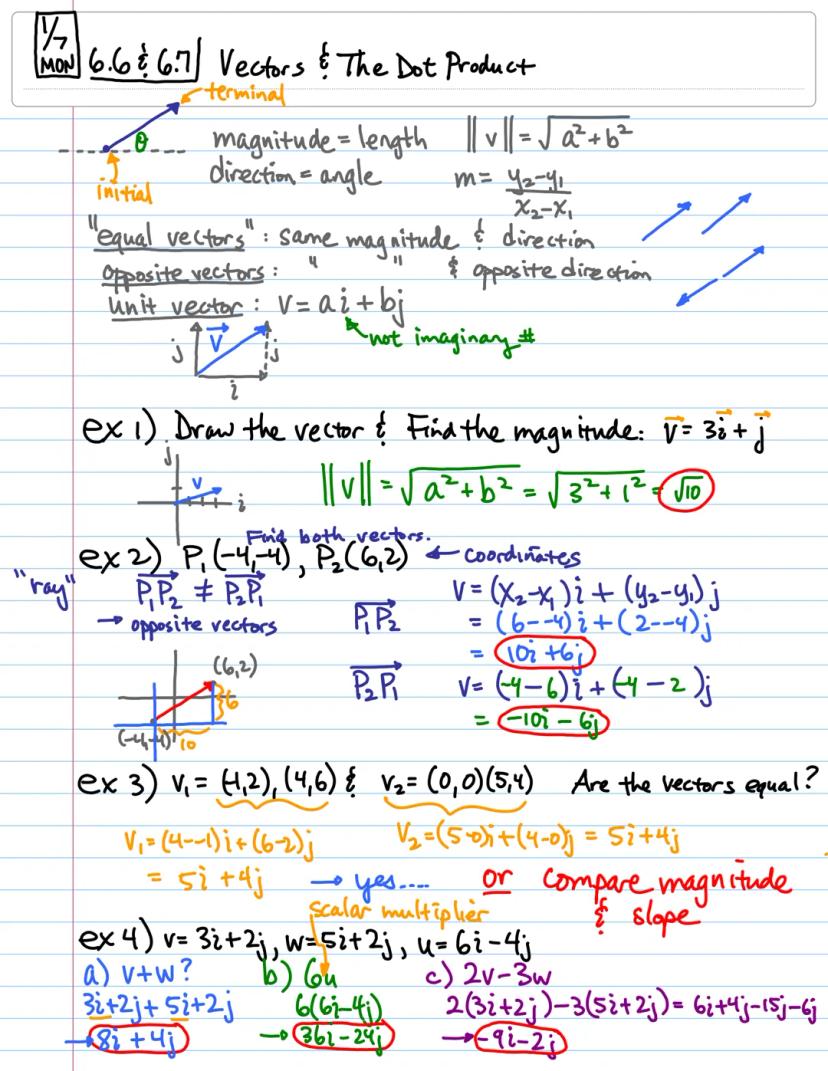 1/7
MON 6.6 & 6.7 Vectors & The Dot Product
terminal
θ
initial
magnitude = length ||v|| = √a²+b²
direction = angle m = y₂-y₁
x₂-x₁
"equal vectors": same magnitude & direction
opposite vectors: " " & opposite direction
unit vector: v = ai + bj
not imaginary #
j v j
i
ex 1) Draw the vector & Find the magnitude: v = 3i + j
j
v
i
||v|| = √a²+b² = √3²+1² = √10
Find both vectors.
ex 2) P₁(-4,-4), P₂(6,2) ← coordinates
"ray" P₁P₂ ≠ P₂P₁
→ opposite vectors
P₁P₂ v = (x₂-x₁)i + (y₂-y₁)j
= (6--4)i + (2--4)j
= 10i + 6j
P₂P₁ v = (-4-6)i + (-4-2)j
= -10i - 6j
(6,2)
6
(-4,-4) 10
ex 3) v₁ = (-1,2), (4,6) & v₂ = (0,0)(5,4) Are the vectors equal?
v₁ = (4--1)i + (6-2)j v₂ = (5-0)i + (4-0)j = 5i + 4j
= 5i + 4j → yes.... or compare magnitude
& slope
scalar multiplier
ex 4) v = 3i + 2j, w = 5i + 2j, u = 6i - 4j
a) v + w? b) 6u c) 2v - 3w
3i + 2j + 5i + 2j 6(6i - 4j) 2(3i + 2j) - 3(5i + 2j) = 6i + 4j - 15j - 6j
→ 8i + 4j → 36i - 24j → -9i - 2j